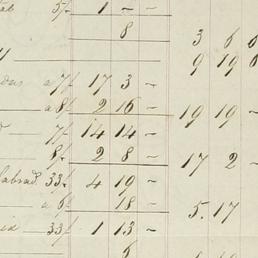 5/. 1 — —
8
3 6 6
9 19 6
a 7/. 17 3 —
a 8/. 2 16 — 19 19 —
7/. 14 14 —
8/. 2 8 — 17 2 —
33/. 4 19 —
a 6/. 18 — 5.17
33/. 1 13 —
6